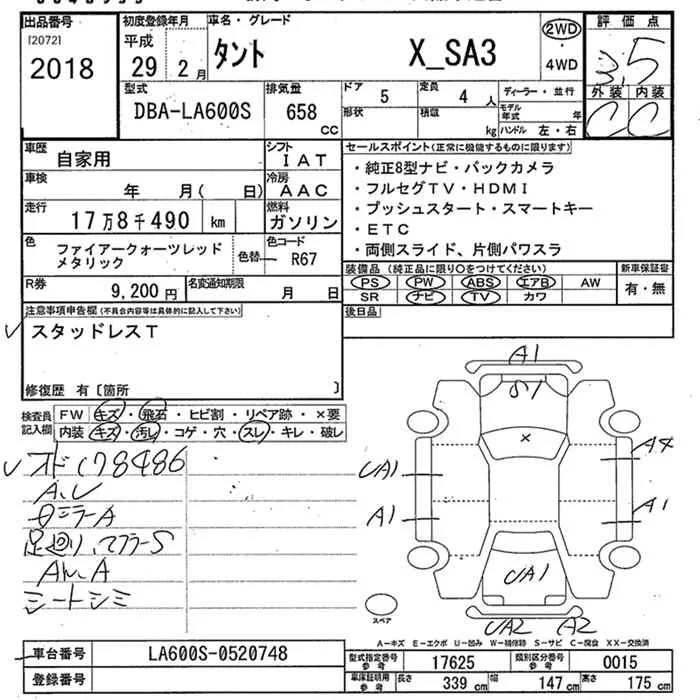 出品番号 初度登録年月 車名・グレード 評価点
[2072] 平成
2018 29年2月 タント X_SA3 2WD・4WD 3.5
型式 排気量 ドア 定員 ディーラー・並行 外装 内装
DBA-LA600S 658cc 5 4人 モデル年式 年 C C
形状 積載 kg ハンドル 左・右
車歴 自家用 シフト IAT セールスポイント(正常に機能するものに限ります)
車検 年 月( 日) 冷房 AAC ・純正8型ナビ・バックカメラ
・フルセグTV・HDMI
走行 17万8千490 km 燃料 ガソリン ・プッシュスタート・スマートキー
・ETC
色 ファイアークォーツレッド 色替 色コード R67 ・両側スライド、片側パワスラ
メタリック
装備品(純正品に限り○をつけてください) 新車保証書
R券 9,200円 名変通知期限 月 日 PS PW ABS エアB AW 有・無
SR ナビ TV カワ
注意事項申告欄(不具合内容等は具体的に記入して下さい) 後日品
スタッドレスT
修復歴 有〔箇所 〕
検査員記入欄 FW キズ・飛石・ヒビ割・リペア跡・×要
内装 キズ・汚レ・コゲ・穴・スレ・キレ・破レ
オド178486
A.U
足回り、マフラーS
シートシミ
A1
S1
×
UA1 A4
A1 A1
UA1
スペア
UA2 A2
A-キズ E-エクボ U-凹み W-補修跡 S-サビ C-腐食 XX-交換済
車台番号 LA600S-0520748 型式指定番号 参考 17625 類別区分番号 参考 0015
登録番号 車庫証明用 参考 長さ 339cm 幅 147cm 高さ 175cm